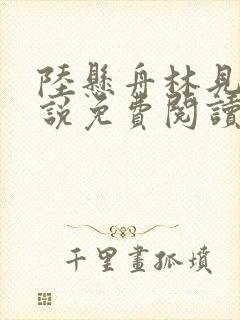 陸懸舟林見
說免費閱讀
千里畫孤墳